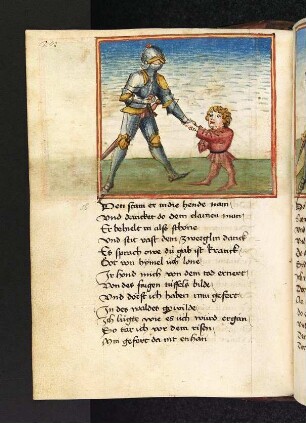 Den stain er in die hende nam
Und dancket do dem clainen man
Er behielt in also schone
Und seit vast dem zwerglin danck
Er sprach owe du gab ist kranck
Got von hymel uch lone
Ir hond mich von dem tod ernert
Von des tufels bilde
Und dorft ich haben nu gefert
In des waldes wilde
Ich lugte wie es uch wurd ergan
So tar ich vor dem risen
Um gefert da nit enhan